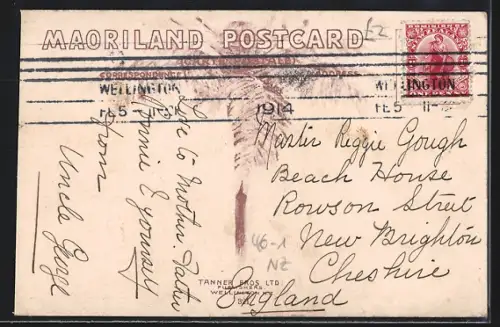 £2
MAORILAND POSTCARD
CORRESPONDENCE
ADDRESS
DOMINION
WELLINGTON
FE5
1914
WELLINGTON
FE5 11
Love to Mother, Father
Jonnie & yourself
from
Uncle George
Master Reggie Gough
Beach House
Rowson Street
New Brighton
Cheshire
England
46-1
NZ
TANNER BROS LTD
PUBLISHERS
WELLINGTON